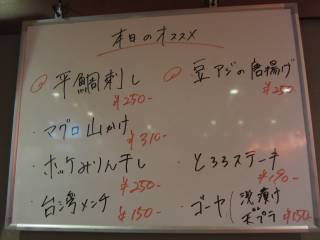 本日のオススメ
平鯛刺し
¥250-
・マグロ山かけ
¥310-
・ホッケみりん干し
¥250-
・台湾メンチ
¥150-
豆アジの唐揚げ
¥250-
・とろろステーキ
¥190-
・ゴーヤ
浅漬け
天プラ
¥150-